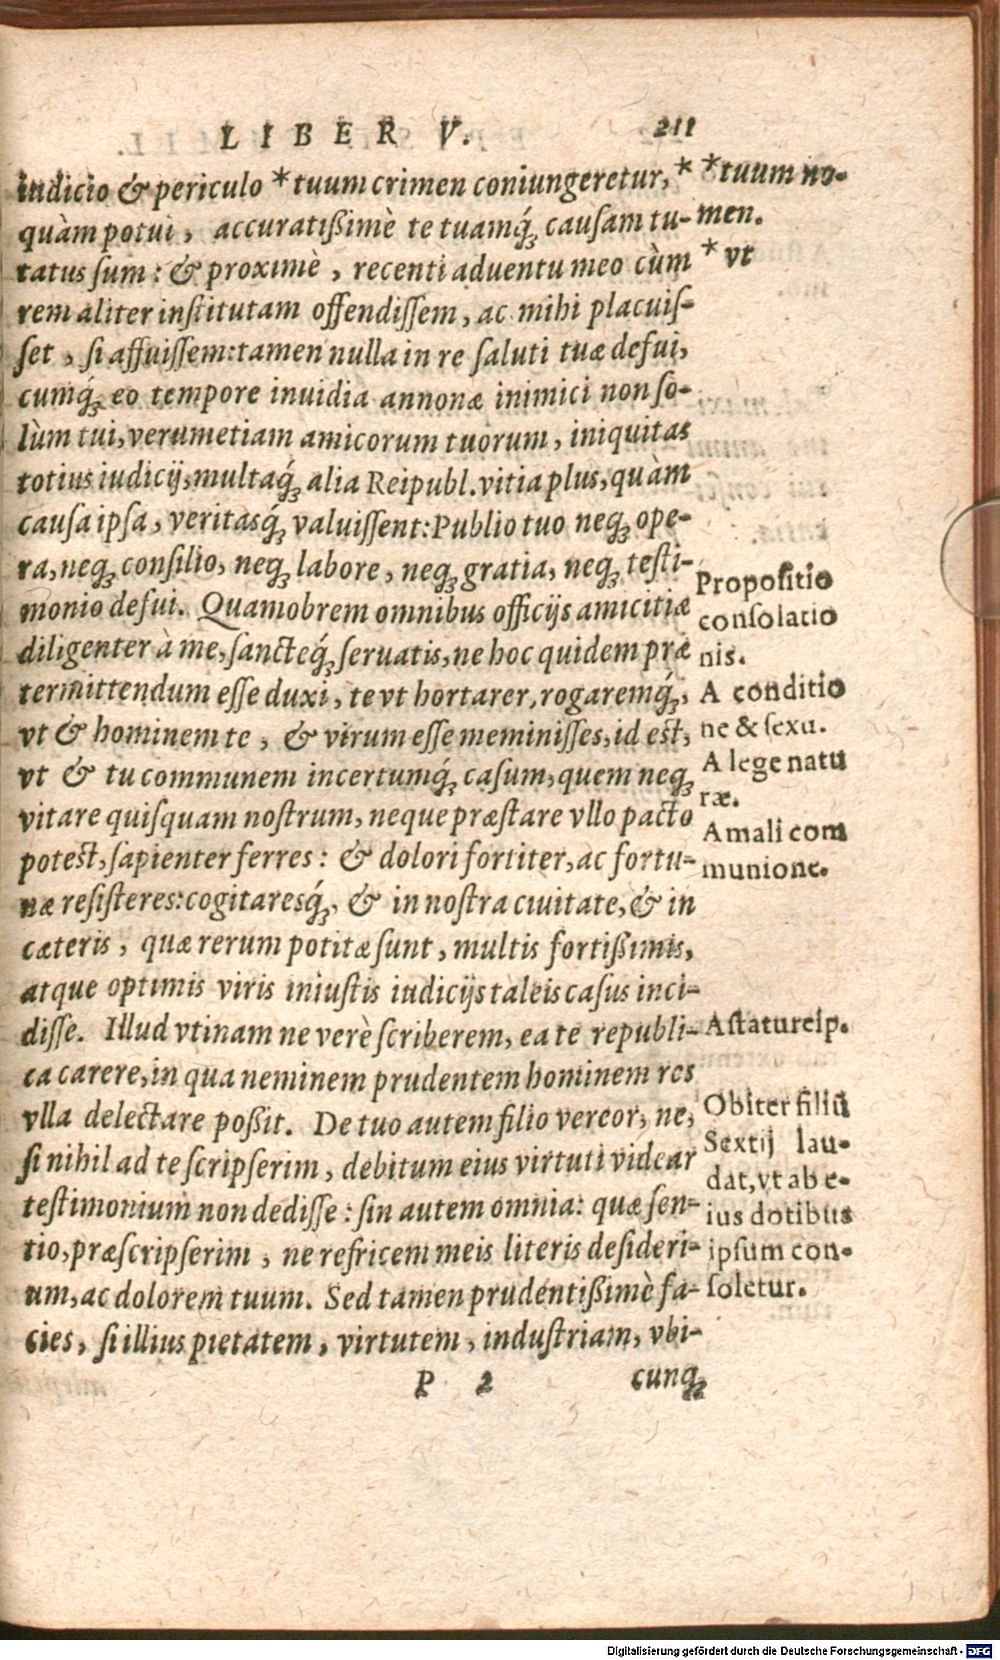 LIBER V. 211
iudicio & periculo * tuum crimen coniungeretur, *
quàm potui, accuratißimè te tuamq́; causam tu-
tatus sum: & proximè, recenti aduentu meo cùm
rem aliter institutam offendissem, ac mihi placuis-
set, si affuissem: tamen nulla in re saluti tuæ defui,
cumq́; eo tempore inuidia annonæ inimici non so-
lùm tui, verumetiam amicorum tuorum, iniquitas
totius iudicij, multaq́; alia Reipubl. vitia plus, quàm
causa ipsa, veritasq́; valuissent: Publio tuo neq; ope-
ra, neq; consilio, neq; labore, neq; gratia, neq; testi-
monio defui. Quamobrem omnibus officijs amicitiæ
diligenter à me, sancteq́; seruatis, ne hoc quidem præ
termittendum esse duxi, te vt hortarer, rogaremq́;,
vt & hominem te, & virum esse meminisses, id est,
vt & tu communem incertumq́; casum, quem neq;
vitare quisquam nostrum, neque præstare vllo pacto
potest, sapienter ferres: & dolori fortiter, ac fortu-
næ resisteres: cogitaresq́;, & in nostra ciuitate, & in
cæteris, quæ rerum potitæ sunt, multis fortißimis,
atque optimis viris iniustis iudicijs taleis casus inci-
disse. Illud vtinam ne verè scriberem, ea te republi-
ca carere, in qua neminem prudentem hominem res
vlla delectare poßit. De tuo autem filio vereor, ne,
si nihil ad te scripserim, debitum eius virtuti videar
testimonium non dedisse: sin autem omnia: quæ sen-
tio, præscripserim, ne refricem meis literis desideri-
um, ac dolorem tuum. Sed tamen prudentißimè fa-
cies, si illius pietatem, virtutem, industriam, vbi-
P 2 cunq;
* tuum no-
men.
* vt
Propositio
consolatio
nis.
A conditio
ne & sexu.
A lege natu
ræ.
A mali com
munione.
A statu reip.
Obiter filiū
Sextij lau-
dat, vt ab e-
ius dotibus
ipsum con-
soletur.
Digitalisierung gefördert durch die Deutsche Forschungsgemeinschaft - DFG